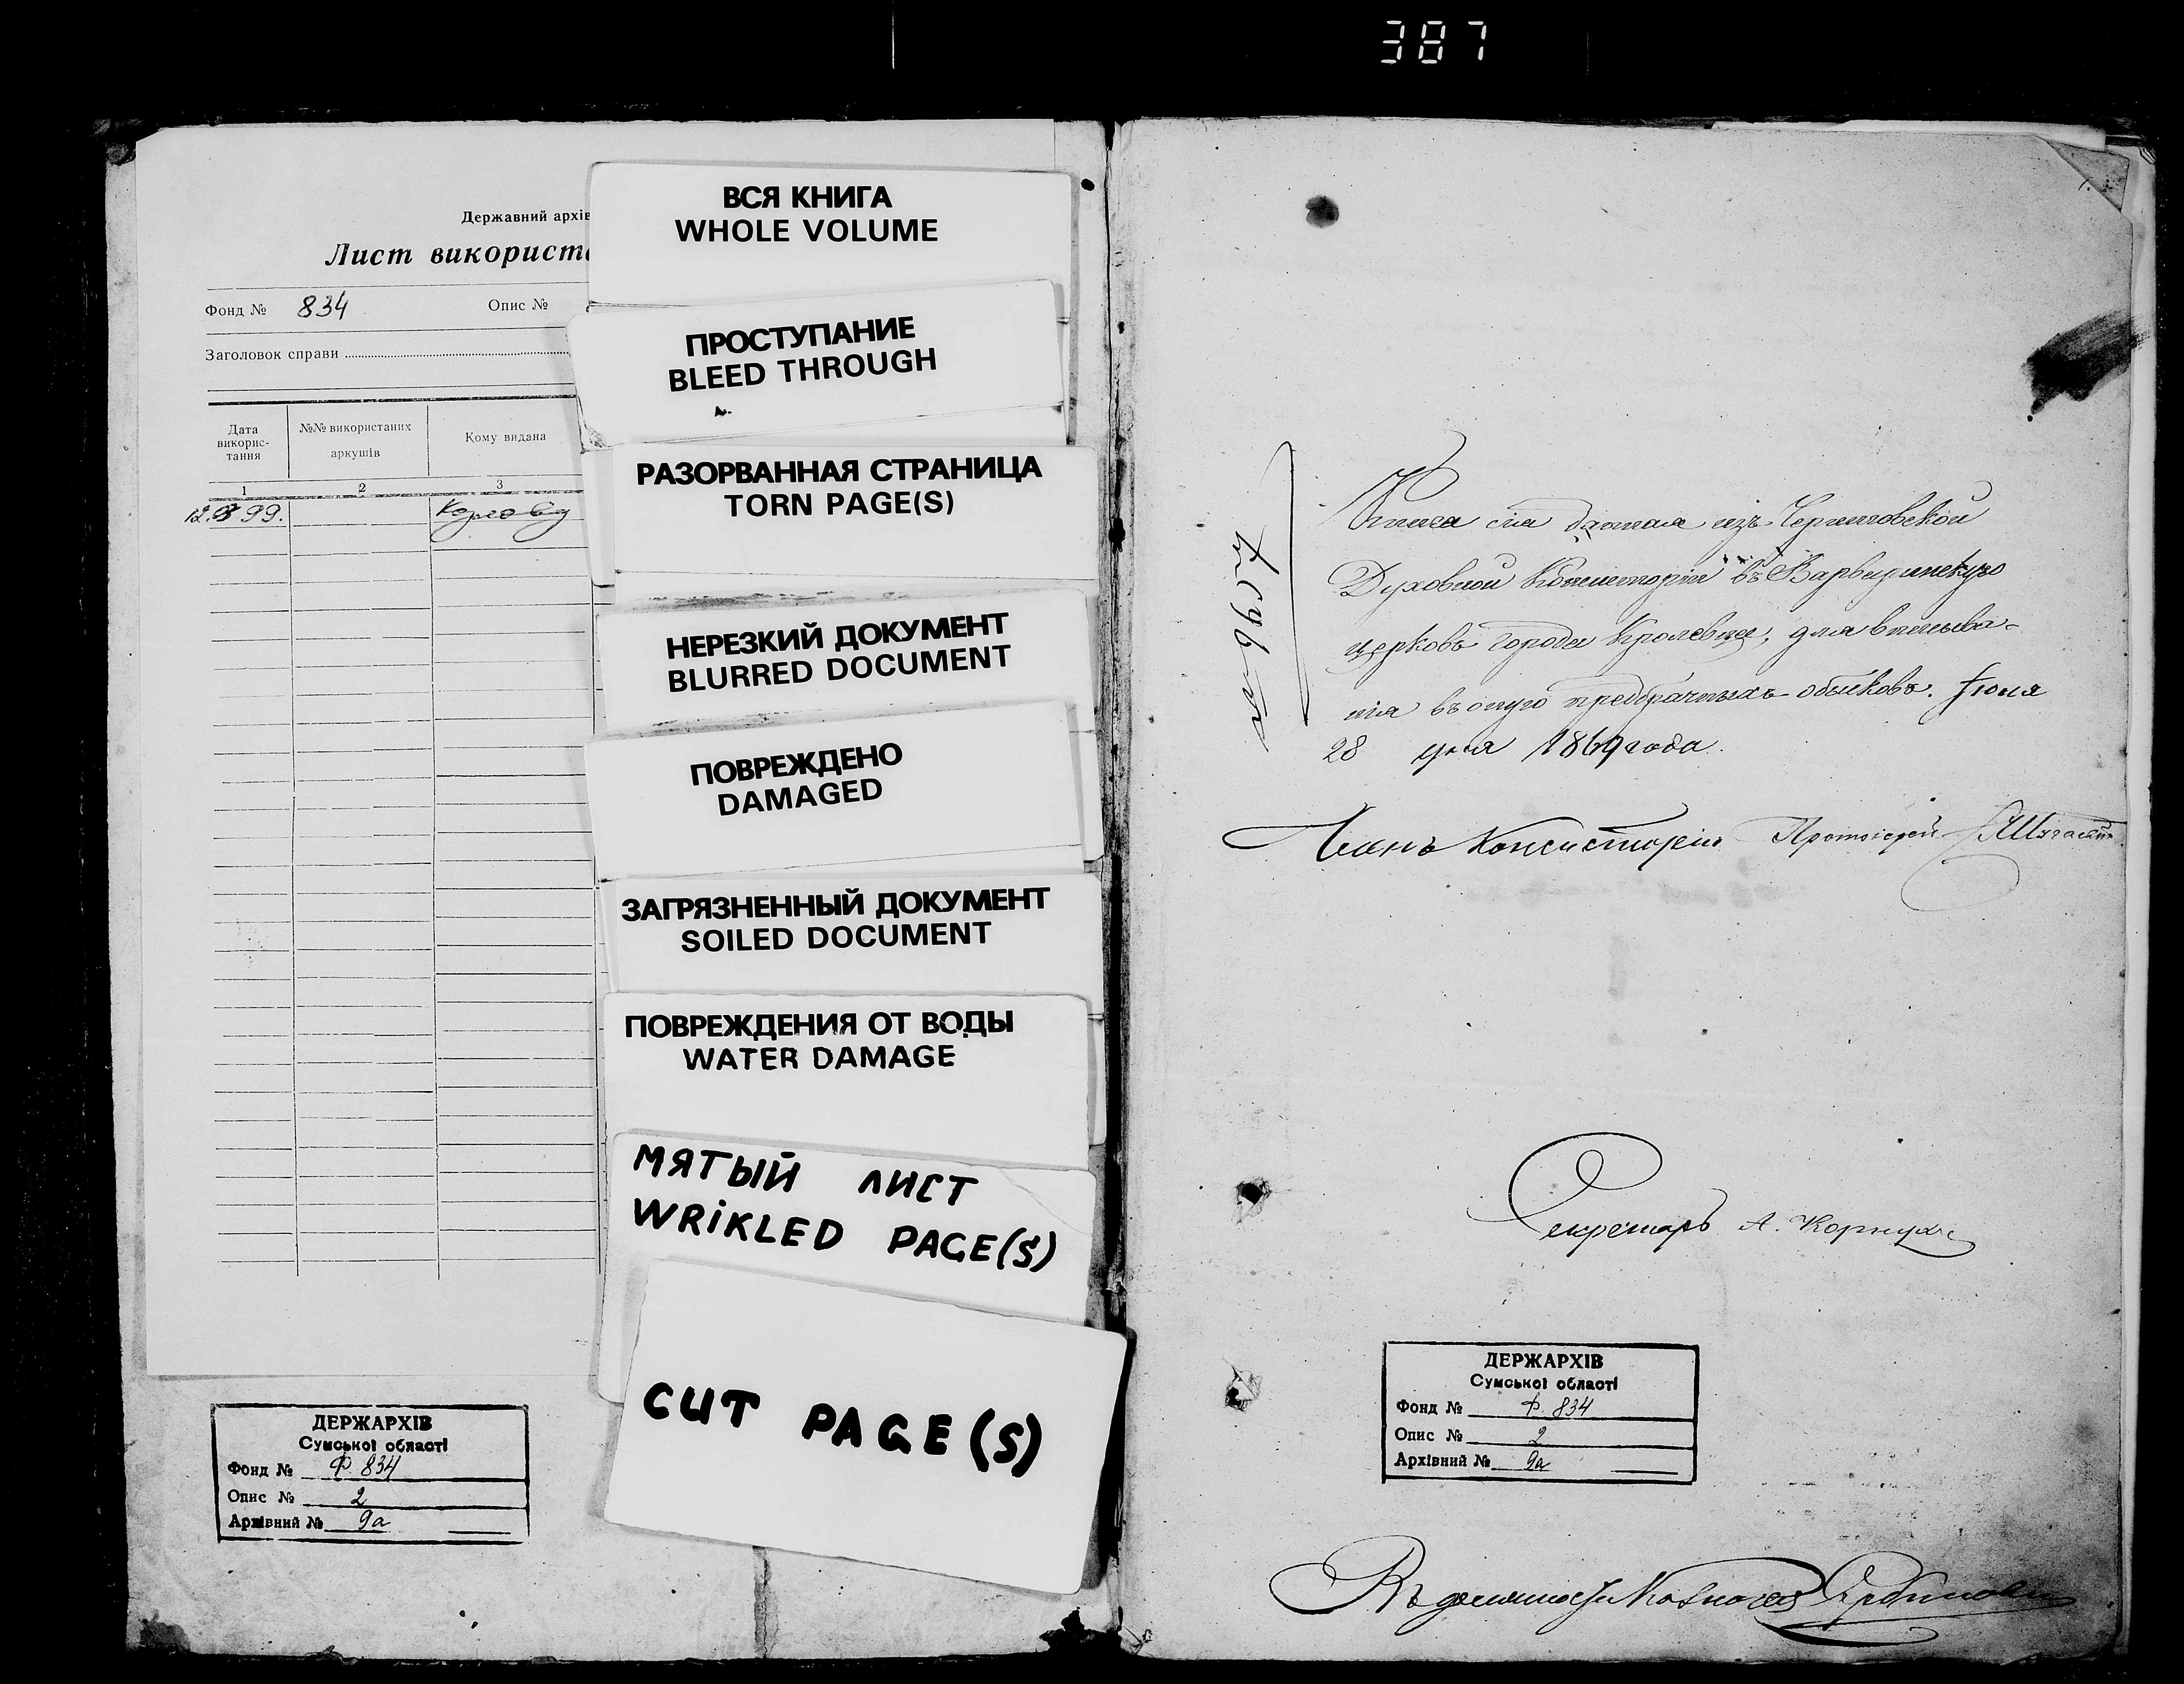 387
Державний архів
Лист використа
Фонд № 834 Опис №
Заголовок справи
Дата використання
№№ використаних аркушів
Кому видана
1 2 3
99.
ВСЯ КНИГА
WHOLE VOLUME
ПРОСТУПАНИЕ
BLEED THROUGH
РАЗОРВАННАЯ СТРАНИЦА
TORN PAGE(S)
НЕРЕЗКИЙ ДОКУМЕНТ
BLURRED DOCUMENT
ПОВРЕЖДЕНО
DAMAGED
ЗАГРЯЗНЕННЫЙ ДОКУМЕНТ
SOILED DOCUMENT
ПОВРЕЖДЕНИЯ ОТ ВОДЫ
WATER DAMAGE
МЯТЫЙ ЛИСТ
WRIKLED PAGE(S)
CUT PAGE(S)
ДЕРЖАРХІВ
Сумської області
Фонд № Ф. 834
Опис № 2
Архівний № 9а
Книга сія данная изъ Черниговской
Духовной Консисторіи въ
церковь города Кролевца, для вписыва-
нія въ оную предбрачныхъ обысковъ. Іюня
28 дня 1869 года.
Членъ Консисторіи Протоіерей
Секретарь А.
ДЕРЖАРХІВ
Сумської області
Фонд № Ф. 834
Опис № 2
Архівний № 9а